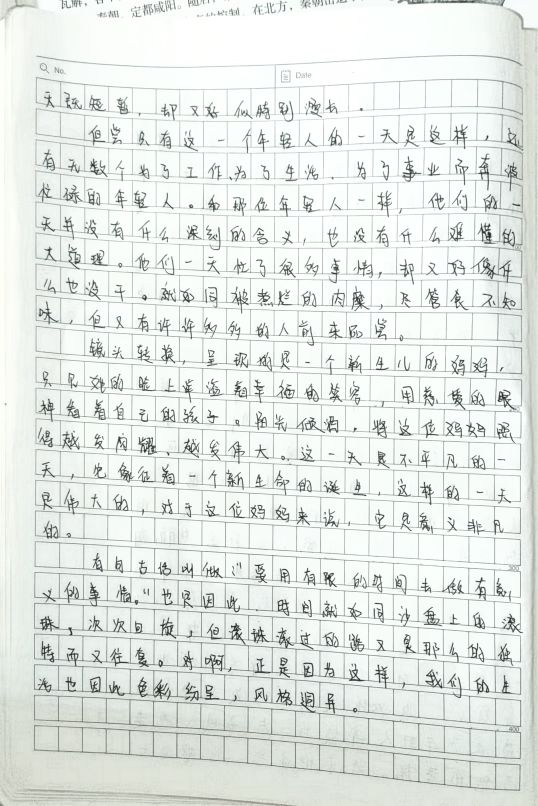 瓦解，
秦朝，定都咸阳。随后
的控制，在北方，秦朝
No.
Date
天既短暂，却又好似特别漫长。
但尝只有这一个年轻人的一天是这样，还
有无数个为了工作、为了生活、为了事业而奔波
忙碌的年轻人。和那位年轻人一样，他们的一
天并没有什么深刻的含义，也没有什么难懂的
大道理。他们一天忙了很多事情，却又好像什
么也没干。就如同被煮烂的肉糜，尽管食不知
味，但又有许许多多的人前来品尝。
镜头转换，呈现的是一个新生儿的妈妈，
只见她的脸上洋溢着幸福的笑容，用慈爱的眼
神看着自己的孩子。阳光倾洒，将这位妈妈照
得越发闪耀、越发伟大。这一天是不平凡的一
天，它象征着一个新生命的诞生，这样的一天
是伟大的，对于这位妈妈来说，它是意义非凡
的。
300
有句古话叫做：“要用有限的时间去做有意
义的事情。”也是因此，时间就如同沙盘上的滚
珠，次次回旋，但滚珠滚过的路又是那么的独
特而又往复。对啊，正是因为这样，我们的生
活也因此色彩纷呈，风格迥异。
400